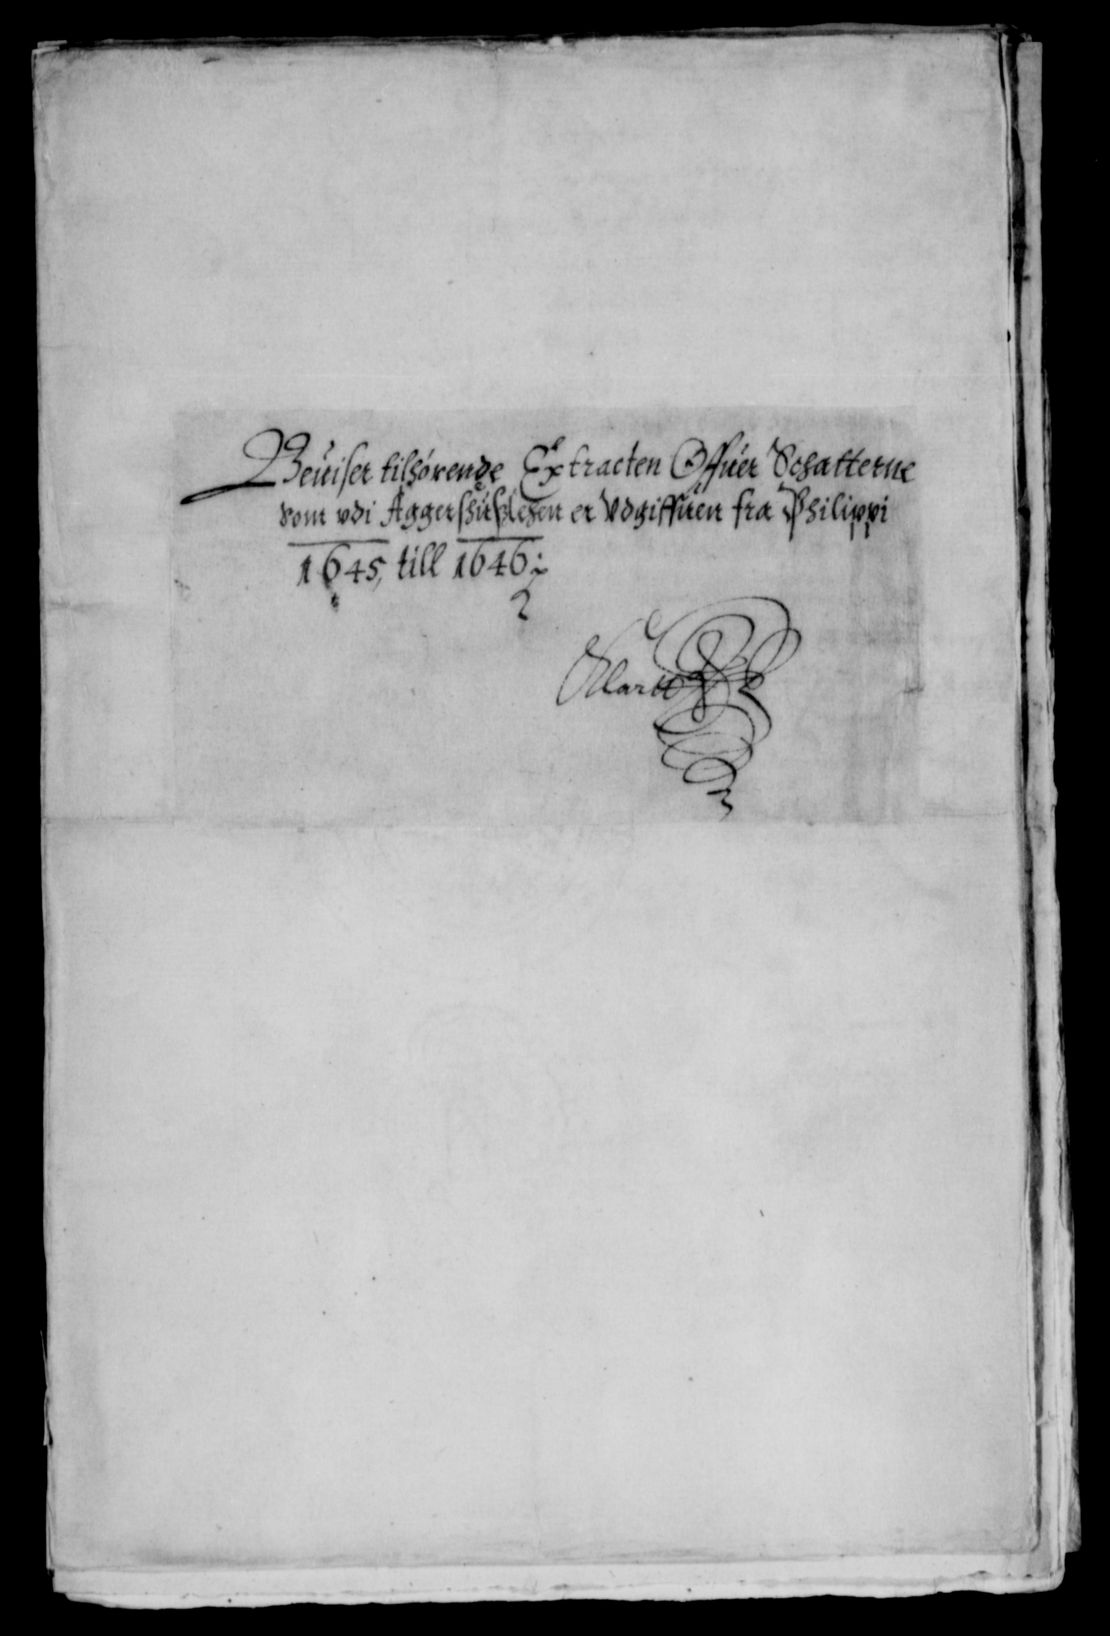 Beuiser tilhörende Extracten Offuer Schatterne
som vdi Aggershuſzlehen er Vdgiffuen fra Philippi
1645, till 1646:
Klartt